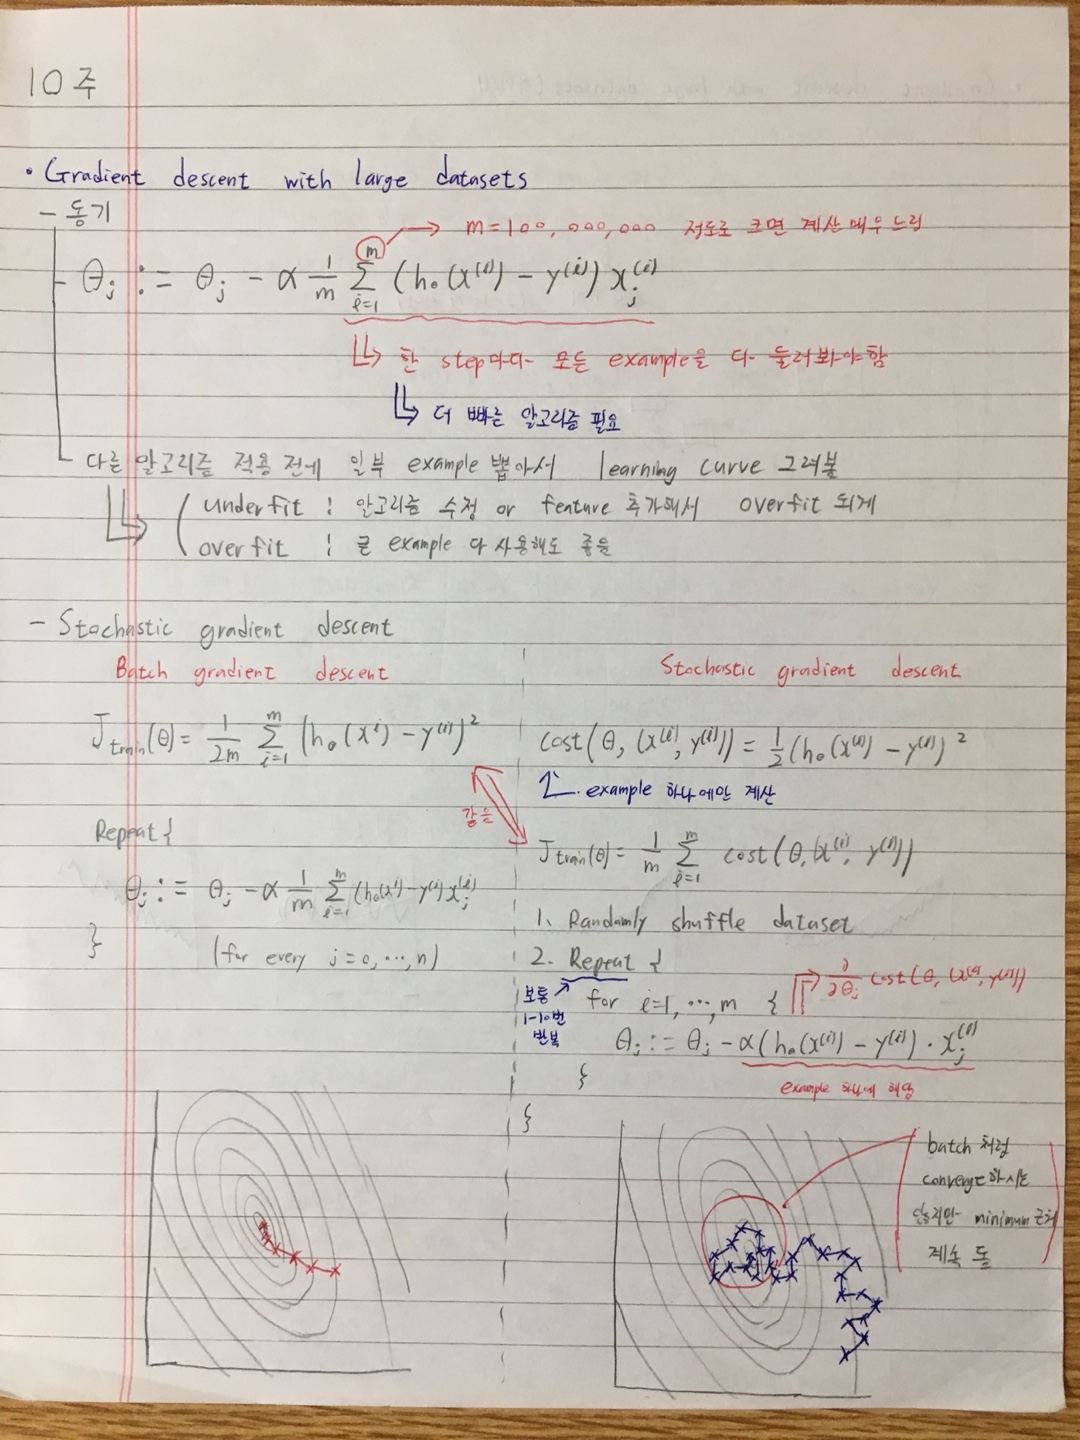 10주
• Gradient descent with large datasets
- 동기
m=100,000,000 정도로 크면 계산 매우 느림
- θj := θj - α 1/m Σ(i=1..m) (hθ(x⁽ⁱ⁾) - y⁽ⁱ⁾) xj⁽ⁱ⁾
한 step마다 모든 example을 다 둘러봐야함
더 빠른 알고리즘 필요
다른 알고리즘 적용 전에 일부 example 뽑아서 learning curve 그려봄
underfit : 알고리즘 수정 or feature 추가해서 overfit 되게
overfit : 큰 example 다 사용해도 좋음
- Stochastic gradient descent
Batch gradient descent
Jtrain(θ) = 1/2m Σ(i=1..m) (hθ(xⁱ) - y⁽ⁱ⁾)²
같음
Repeat {
θj := θj - α 1/m Σ(i=1..m) (hθ(xⁱ) - y⁽ⁱ⁾) xj⁽ⁱ⁾
} (for every j=0, ⋯, n)
Stochastic gradient descent
cost(θ, (x⁽ⁱ⁾, y⁽ⁱ⁾)) = 1/2 (hθ(x⁽ⁱ⁾) - y⁽ⁱ⁾)²
example 하나에만 계산
Jtrain(θ) = 1/m Σ(i=1..m) cost(θ, (x⁽ⁱ⁾, y⁽ⁱ⁾))
1. Randomly shuffle dataset
2. Repeat {
보통
1-10번
반복
for i=1, ⋯, m {
∂/∂θj cost(θ, (x⁽ⁱ⁾, y⁽ⁱ⁾))
θj := θj - α(hθ(x⁽ⁱ⁾) - y⁽ⁱ⁾) · xj⁽ⁱ⁾
example 하나에 해당
}
}
batch 처럼
converge하지는
않지만 minimum 근처
계속 돎